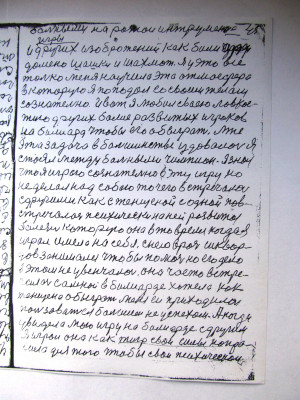 больными на разной инструмен- 45
игры
и других изобретений как были
домено шашки и шахмат. Я у это все
только меня научила эта атмосфера
в которую я попадал со своим телом
сознательно. И вот я любил свою ловкос-
тью других более развитых игроков
на бильярд чтобы его обыграт. Мне
эта задача в большинстве удавалос. Я
стоял между больными чемпион. Я знал
что я играю сознательно в эту игру но
не делал над собою того встречался
с другими как с женщиной с одной пов-
стречался психически на ней развитой
болезни которую она в то время когда я
играл имела на себя. с нею врач
занимался чтобы помоч но его дело
в этом не увенчалос. она часто встре-
чалас самной в бильярде хотела как
женщина обыграт меня ей приходилос
пользоватся большим не успехом. А когда
увидела мою игру на бильярде с другими
я играл она как тигр свои силы напра-
вила для того чтобы свои психическои